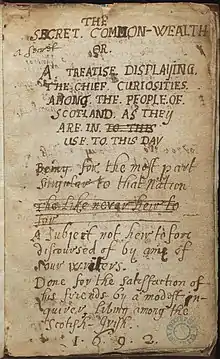 THE
SECRET COMMON-WEALTH
OR
A TREATISE DISPLAYING
THE CHIEF CURIOSITIES
AMONG THE PEOPLE OF
SCOTLAND AS THEY
ARE IN TO THIS
USE TO THIS DAY
Being for the most part
singular to that Nation
The like never heir to
for
A Subject not heir to fore
discoursed of by any of
our writers.
Done for the satisfaction of
his friends by a modest in-
quirer, living among the
Scotish-Irish.
1692